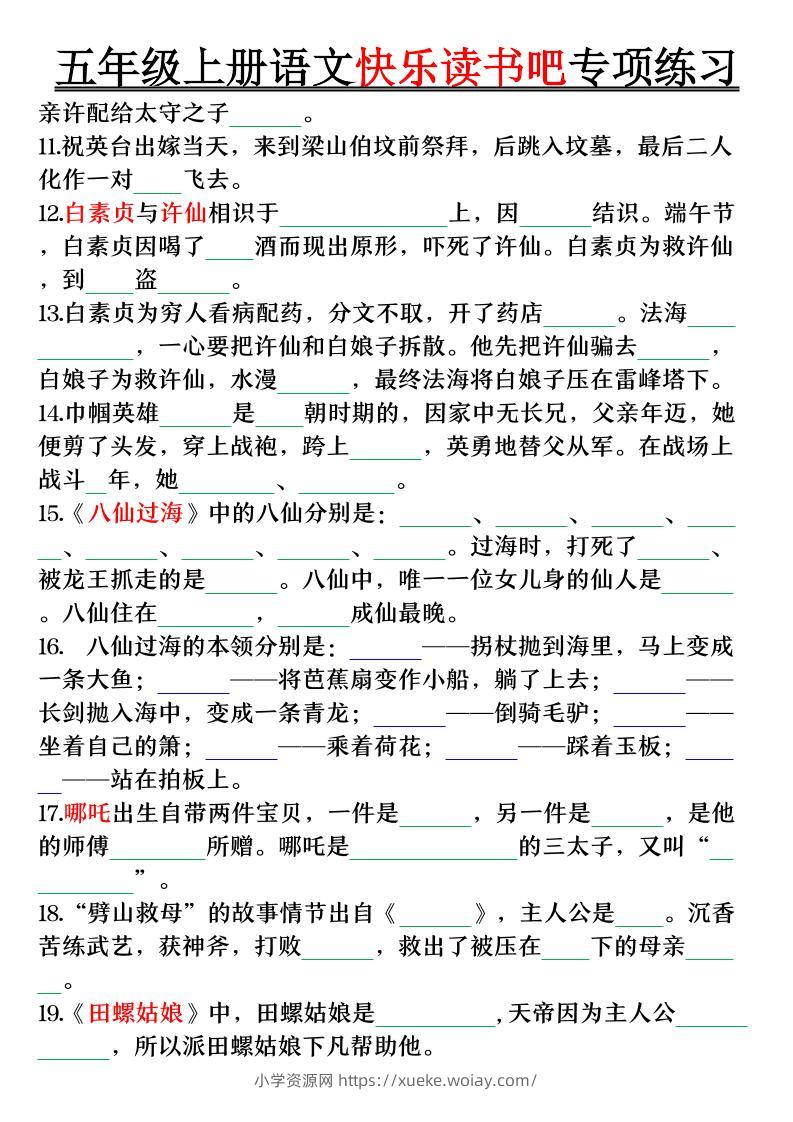 五年级上册语文快乐读书吧专项练习
亲许配给太守之子______。
11.祝英台出嫁当天，来到梁山伯坟前祭拜，后跳入坟墓，最后二人
化作一对____飞去。
12.白素贞与许仙相识于______________上，因______结识。端午节
，白素贞因喝了____酒而现出原形，吓死了许仙。白素贞为救许仙
，到____盗______。
13.白素贞为穷人看病配药，分文不取，开了药店______。法海____
________，一心要把许仙和白娘子拆散。他先把许仙骗去______，
白娘子为救许仙，水漫______，最终法海将白娘子压在雷峰塔下。
14.巾帼英雄______是____朝时期的，因家中无长兄，父亲年迈，她
便剪了头发，穿上战袍，跨上______，英勇地替父从军。在战场上
战斗__年，她________、________。
15.《八仙过海》中的八仙分别是：______、______、______、____
__、______、______、______、______。过海时，打死了______、
被龙王抓走的是______。八仙中，唯一一位女儿身的仙人是______
。八仙住在________，______成仙最晚。
16. 八仙过海的本领分别是：______——拐杖抛到海里，马上变成
一条大鱼；______——将芭蕉扇变作小船，躺了上去；______——
长剑抛入海中，变成一条青龙；______——倒骑毛驴；______——
坐着自己的箫；______——乘着荷花；______——踩着玉板；____
__——站在拍板上。
17.哪吒出生自带两件宝贝，一件是______，另一件是______，是他
的师傅________所赠。哪吒是______________的三太子，又叫“__
________”。
18.“劈山救母”的故事情节出自《______》，主人公是____。沉香
苦练武艺，获神斧，打败______，救出了被压在____下的母亲____
__。
19.《田螺姑娘》中，田螺姑娘是__________,天帝因为主人公______
______，所以派田螺姑娘下凡帮助他。
小学资源网 https://xueke.woiay.com/